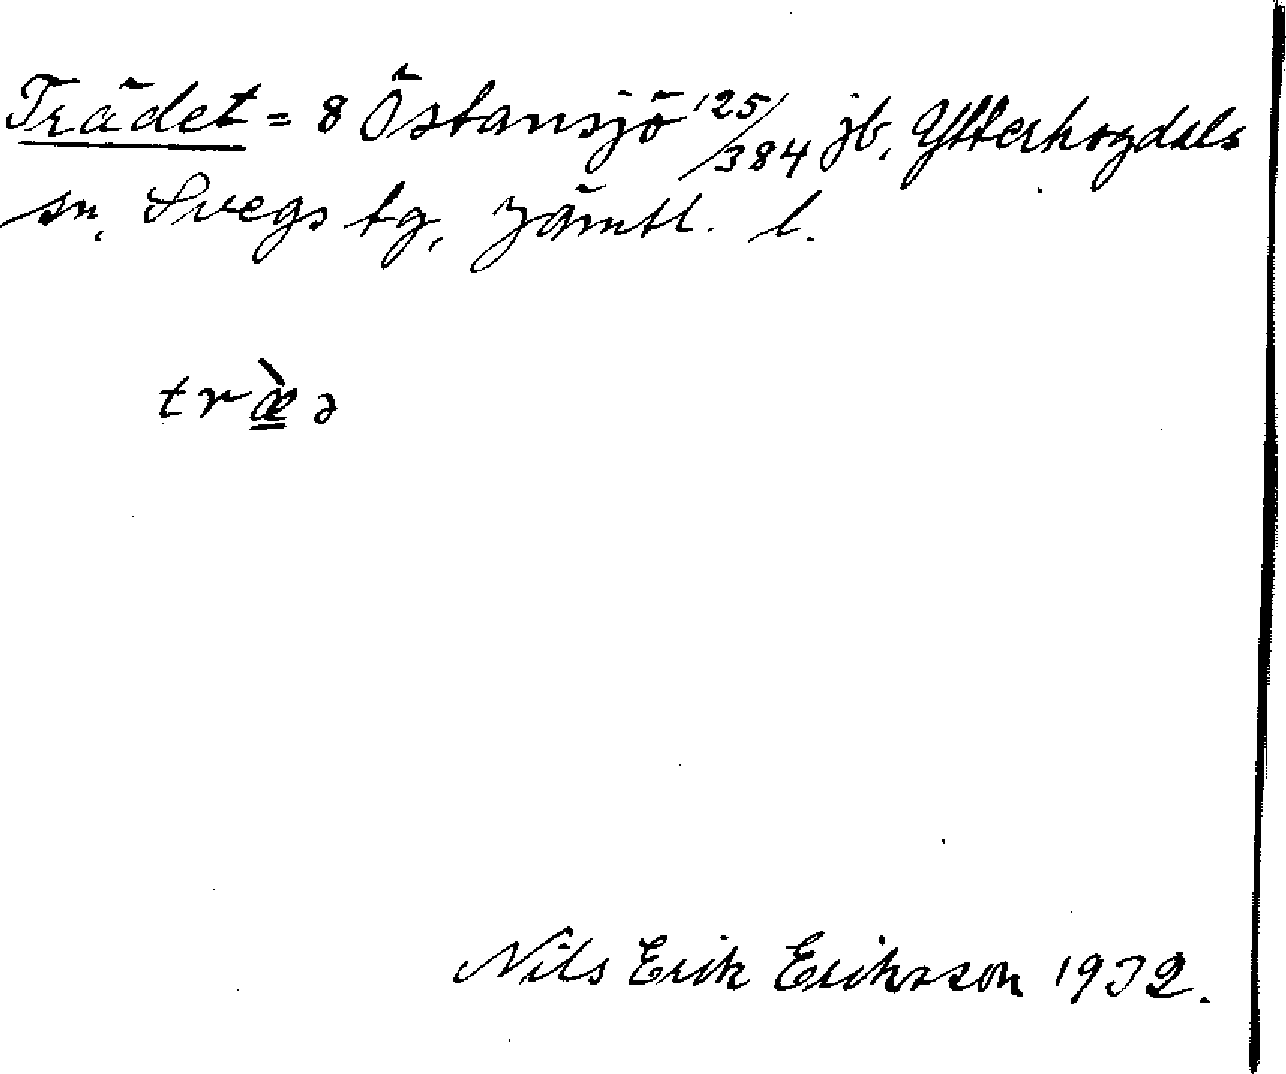 Trädet = 8 Östansjö 125/384 jb, Ytterhogdals
sn, Svegs tg, Jämtl. l.
træ̀ə
Nils Erik Eriksson 1932.